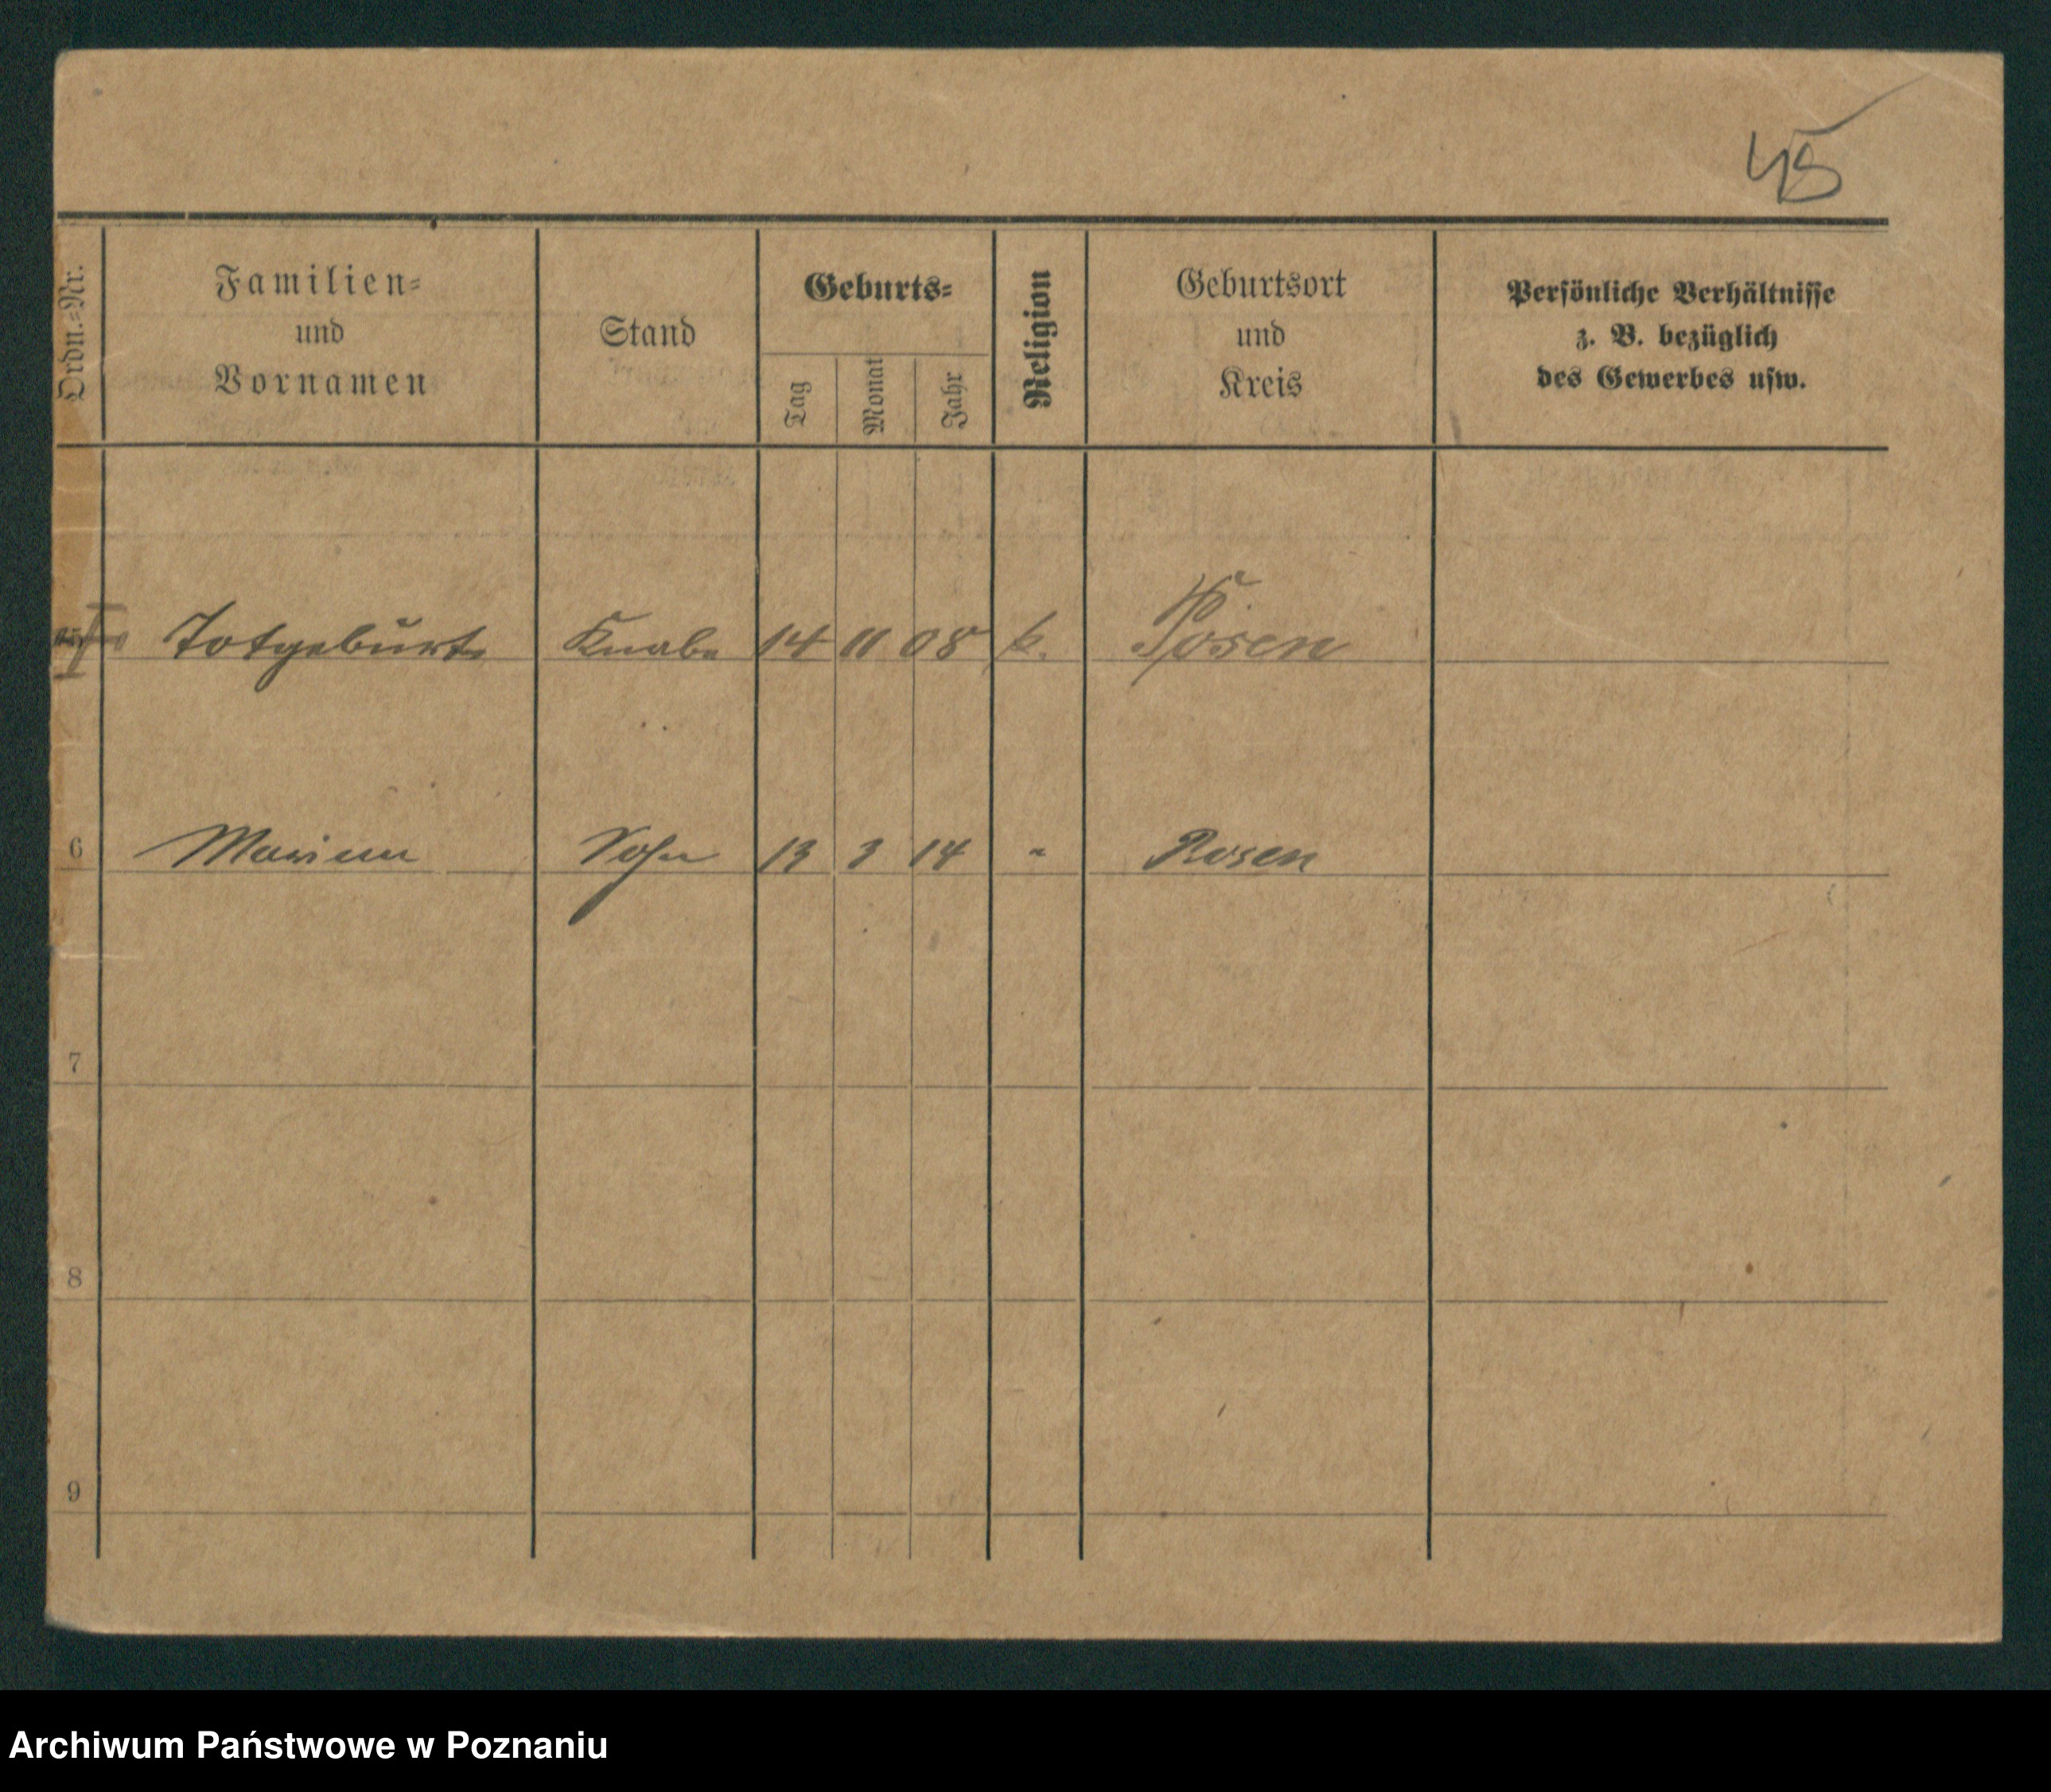 45
Ordn.=Nr.
Familien=
und
Vornamen
Stand
Geburts=
Tag
Monat
Jahr
Religion
Geburtsort
und
Kreis
Persönliche Verhältnisse
z. B. bezüglich
des Gewerbes usw.
Totgeburt Knabe 14 11 08 k. Posen
6 Marian Sohn 13 3 14 " Posen
7
8
9
Archiwum Państwowe w Poznaniu